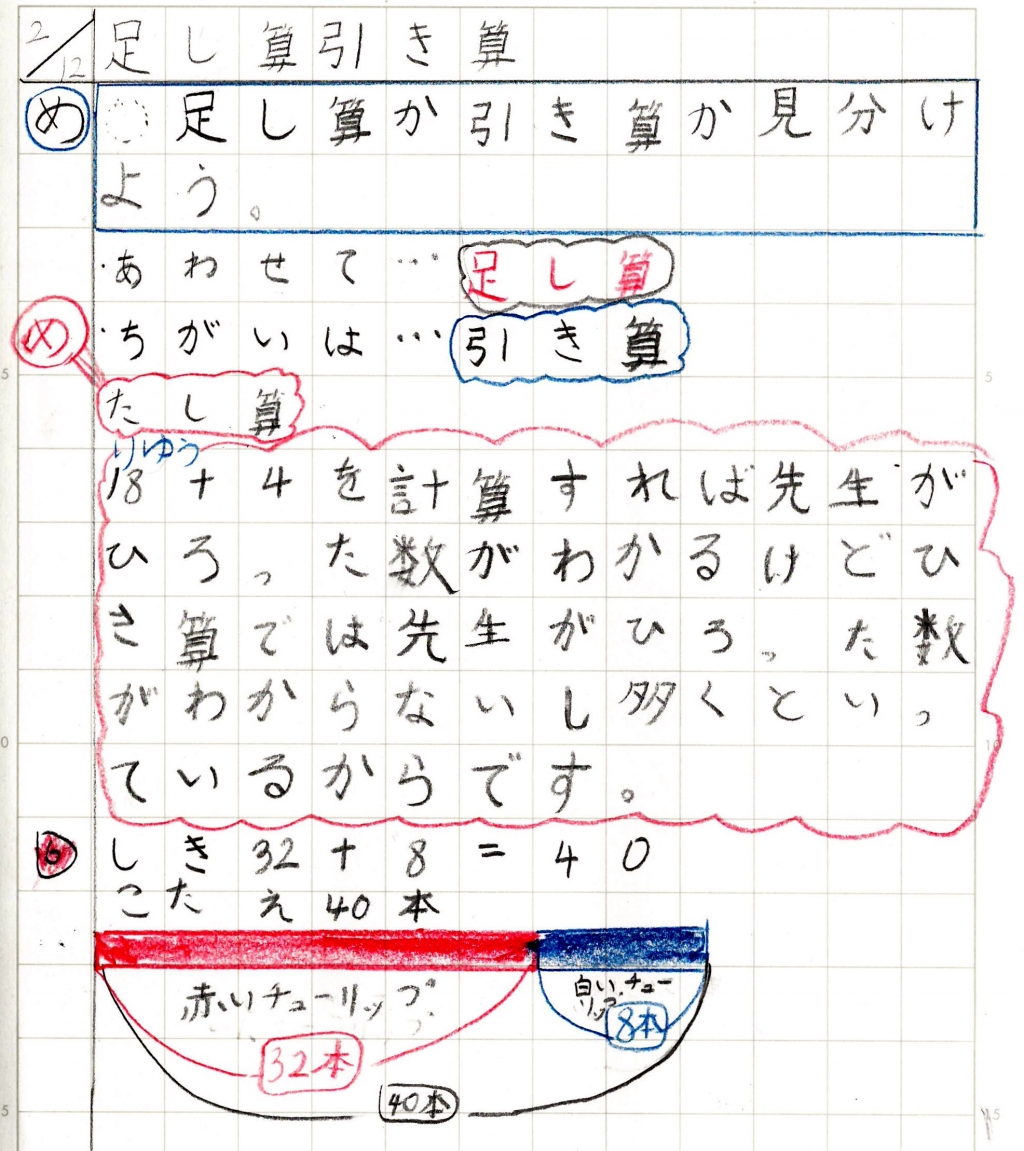 2/12 足し算引き算
め 足し算か引き算か見分け
よう。
・あわせて…足し算
・ちがいは…引き算
め
たし算
りゆう
18+4を計算すれば先生が
ひろった数がわかるけどひ
き算では先生がひろった数
がわからないし多くといっ
ているからです。
6 しき32+8=40
こたえ40本
赤いチューリップ
白いチュー
リップ
32本
8本
40本
5
5
10
5
15